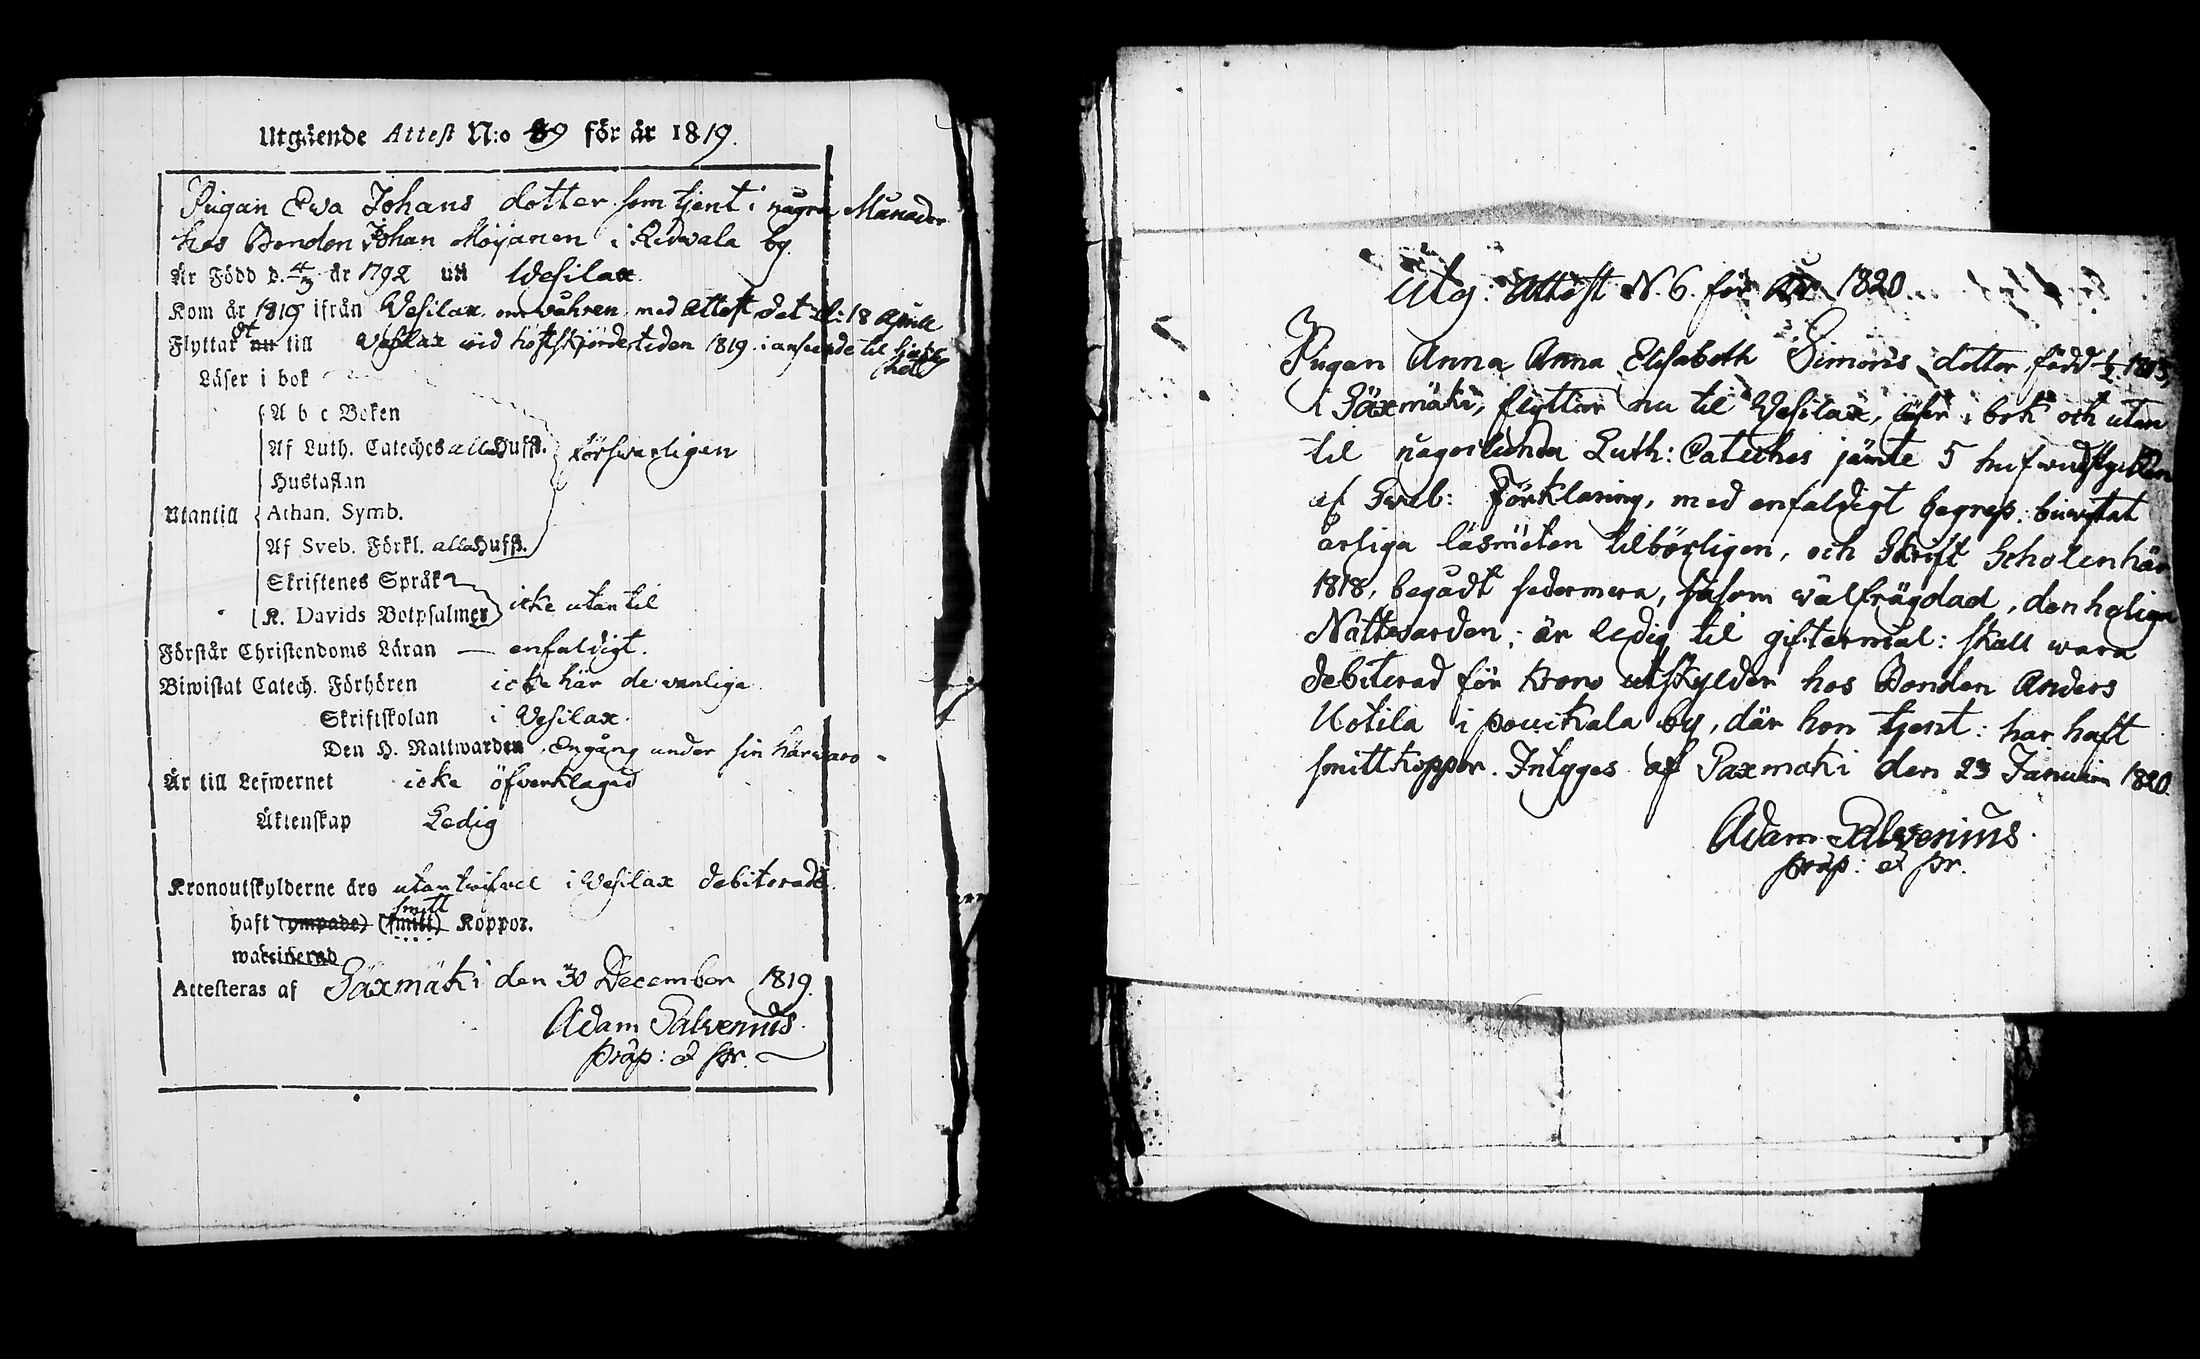 Utgående Attest N:o 89 för år 1819.
Pigan Ewa Johans dotter som tjent i några Månader
hos Bonden Johan Moijanen i Ridvala by.
Är Född d. 4/3 år 1792 uti Wesilax.
Kom år 1819 ifrån Wesilax om våhren med Attest dat d: 18 Aprill
Flyttat nu till Wesilax wid höstskjördestiden 1819 i anseende til sjuklig
het
Läser i bok
A b c Boken
Af Luth. Cateches alla Hufst. försvarligen
Hustaflan
Utantill Athan. Symb.
Af Sveb. Förkl. alla Hufst.
Skriftenes Språk
K. Davids Botpsalmer icke utantil
Förstår Christendoms Läran — enfaldigt.
Biwistat Catech. Förhören icke här de vanliga
Skriftskolan i Vesilax.
Den H. Nattwarden Engång under sin härvaro
Är till Lefwernet icke öfverklagad
Äktenskap Ledig
Kronoutskylderne äro utan twifvel i Wesilax debiterade.
smitt
haft (ympade) (smitt) Koppor.
waccinerad
Attesteras af Säxmäki den 30 December 1819.
Adam Salvenius.
præp: & pr.
Utg: Attest N. 6. för År 1820.
Pigan Anna Anna Elisabeth Simons dotter, född
i Säxmäki, flyttar nu til Wesilax, läser i bok och utan
til någorlunda Luth: Cateches jämte 5 hufwudstycken
af Sveb: Förklaring, med enfaldigt begrep. biwistat
årliga läsmöten tilbörligen, och Skrift Scholen här
1818, begådt sedermera, såsom wälfrägdad, den heliga
Nattwarden; är ledig til giftermål: skall wara
debiterad för Krono utskylder hos Bonden Anders
Uotila i pouikala by, där hon tjent: har haft
smittkoppor. Intygas af Saxmaki den 23 Januarii 1820.
Adam Salvenius.
præp: & pr.